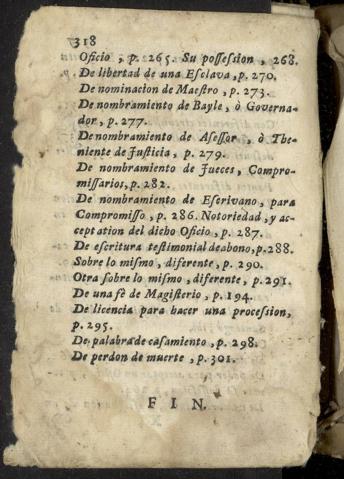 318
Oficio, p. 265. Su poſſeſsion, 268.
De libertad de una Eſclava, p. 270.
De nominacion de Maeſtro, p. 273.
De nombramiento de Bayle, ò Governa-
dor, p. 277.
De nombramiento de Aſeſſor, ò The-
niente de Juſticia, p. 279.
De nombramiento de Jueces, Compro-
miſſarios, p. 282.
De nombramiento de Eſcrivano, para
Compromiſſo, p. 286. Notoriedad, y ac-
ceptation del dicho Oficio, p. 287.
De eſcritura teſtimonial de abono, p. 288.
Sobre lo miſmo, diferente, p. 290.
Otra ſobre lo miſmo, diferente, p. 291.
De una fè de Magiſterio, p. 194.
De licencia para hacer una proceſsion,
p. 295.
De palabra de caſamiento, p. 298.
De perdon de muerte, p. 301.
FIN.